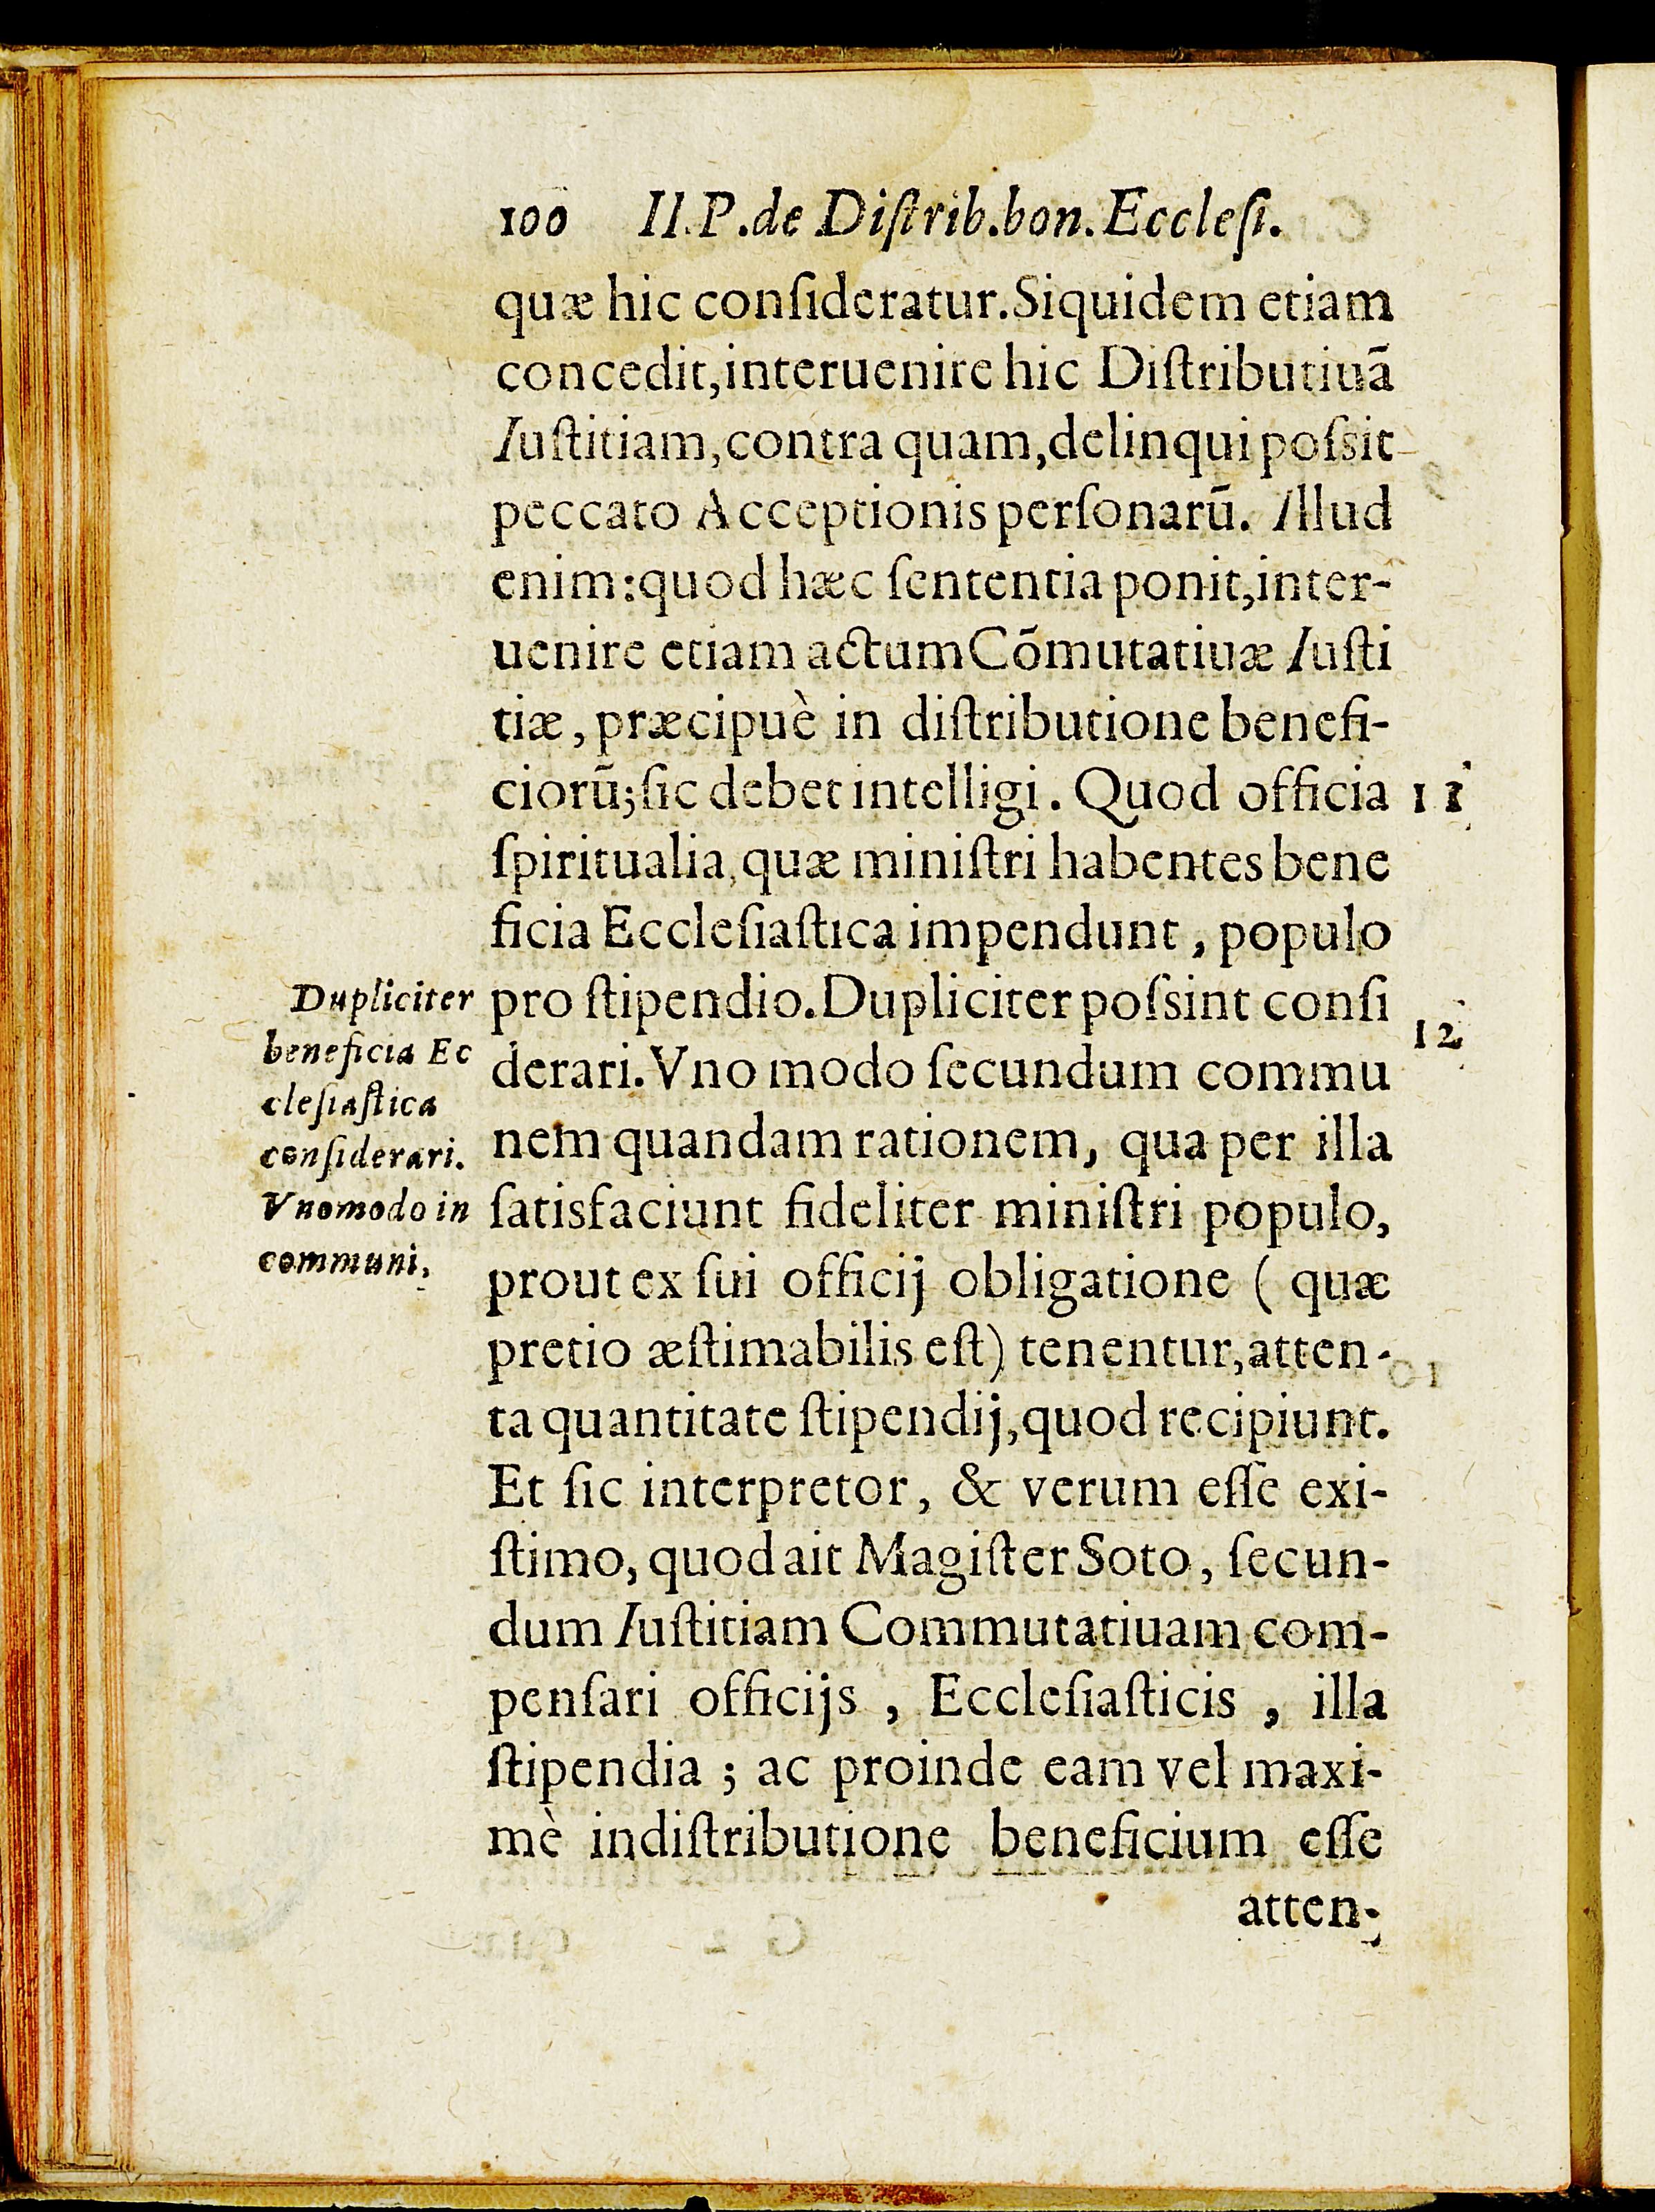 100 II.P.de Diſtrib.bon.Eccleſi.
quæ hic conſideratur.Siquidem etiam
concedit,interuenire hic Diſtributiuã
Iuſtitiam,contra quam,delinqui poſsit
peccato Acceptionis perſonarũ. Illud
enim:quod hæc ſententia ponit,inter-
uenire etiam actum Cõmutatiuæ Iuſti
tiæ, præcipuè in diſtributione benefi-
ciorũ;ſic debet intelligi. Quod officia 11
ſpiritualia,quæ miniſtri habentes bene
ficia Eccleſiaſtica impendunt, populo
pro ſtipendio.Dupliciter poſsint conſi
derari.Vno modo ſecundum commu 12
nem quandam rationem, qua per illa
ſatisfaciunt fideliter miniſtri populo,
prout ex ſui officij obligatione ( quæ
pretio æſtimabilis eſt) tenentur,atten-
ta quantitate ſtipendij,quod recipiunt.
Et ſic interpretor, & verum eſſe exi-
ſtimo, quod ait Magiſter Soto, ſecun-
dum Iuſtitiam Commutatiuam com-
penſari officijs , Eccleſiaſticis , illa
ſtipendia ; ac proinde eam vel maxi-
mè indiſtributione beneficium eſſe
atten-
Dupliciter
beneficia Ec
cleſiaſtica
conſiderari.
Vnomodo in
communi,